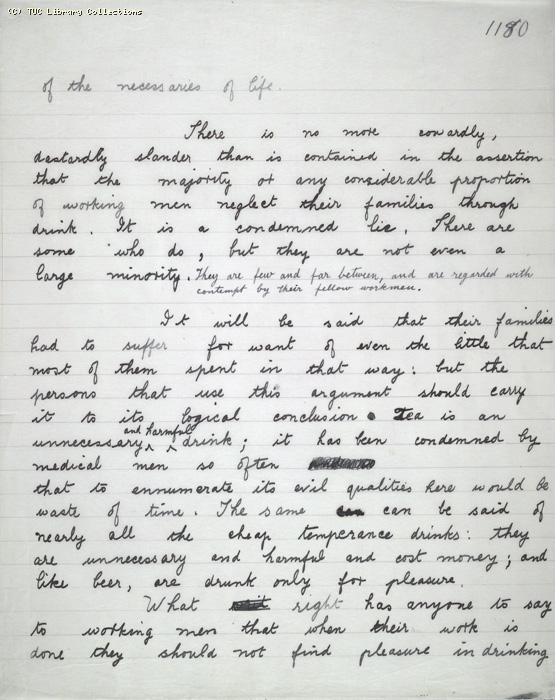 (C) TUC Library Collections
1180
of the necessaries of life.
There is no more cowardly,
dastardly slander than is contained in the assertion
that the majority or any considerable proportion
of working men neglect their families through
drink. It is a condemned lie. There are
some who do, but they are not even a
large minority. They are few and far between, and are regarded with
contempt by their fellow workmen.
It will be said that their families
had to suffer for want of even the little that
most of them spent in that way: but the
persons that use this argument should carry
it to its logical conclusion. Tea is an
and harmful
unnecessary drink; it has been condemned by
medical men so often
that to ennumerate its evil qualities here would be
waste of time. The same can be said of
nearly all the cheap temperance drinks: they
are unnecessary and harmful and cost money; and
like beer, are drunk only for pleasure.
What right has anyone to say
to working men that when their work is
done they should not find pleasure in drinking